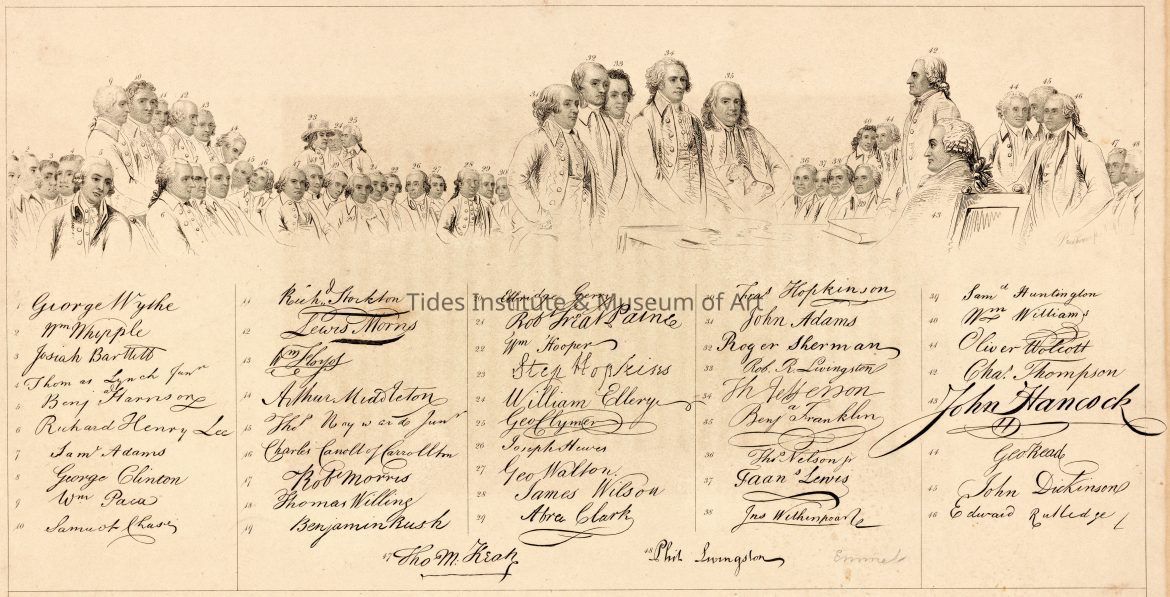 1 George Wythe
2 Wm Whipple
3 Josiah Bartlett
4 Thomas Lynch Junr
5 Benj Harrison
6 Richard Henry Lee
7 Saml Adams
8 George Clinton
9 Wm Paca
10 Samuel Chase
11 Richd Stockton
12 Lewis Morris
13 Wm Floyd
14 Arthur Middleton
15 Thos Heyward Junr
16 Charles Carroll of Carrollton
17 Robt Morris
18 Thomas Willing
19 Benjamin Rush
20 Elbridge Gerry
21 Robt Treat Paine
22 Wm Hooper
23 Step Hopkins
24 William Ellery
25 Geo Clymer
26 Joseph Hewes
27 Geo Walton
28 James Wilson
29 Abra Clark
30 Fras Hopkinson
31 John Adams
32 Roger Sherman
33 Rob. R. Livingston
34 Th Jefferson
35 Benj Franklin
36 Thos Nelson jr
37 Frans Lewis
38 Jno Witherspoon
39 Saml Huntington
40 Wm Williams
41 Oliver Wolcott
42 Chas. Thompson
43 John Hancock
44 Geo Read
45 John Dickinson
46 Edward Rutledge
47 Tho M. Kean
48 Phil Livingston
Emmet
Tides Institute & Museum of Art